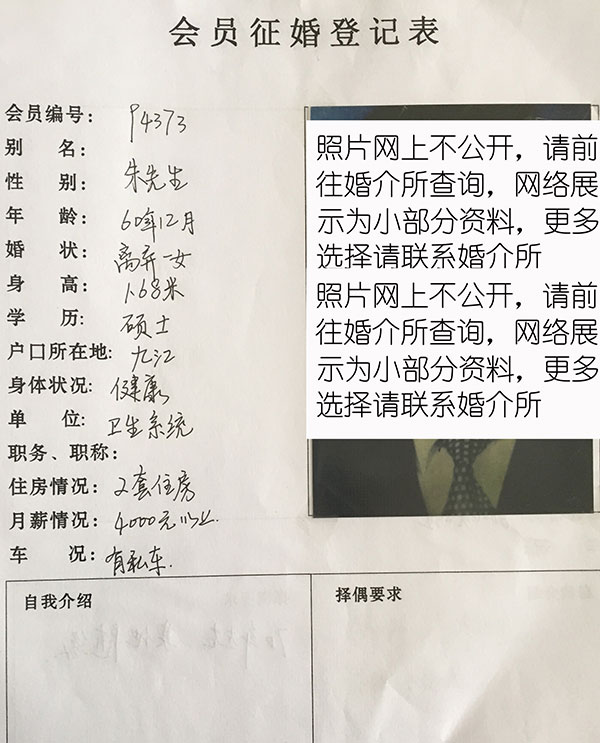 会员征婚登记表
会员编号: P4373
别 名:
性 别: 朱先生
年 龄: 60年12月
婚 状: 离异一女
身 高: 1.68米
学 历: 硕士
户口所在地: 九江
身体状况: 健康
单 位: 卫生系统
职务、职称:
住房情况: 2套住房
月薪情况: 4000元以上.
车 况: 有私车.
照片网上不公开，请前
往婚介所查询，网络展
示为小部分资料，更多
选择请联系婚介所
照片网上不公开，请前
往婚介所查询，网络展
示为小部分资料，更多
选择请联系婚介所
自我介绍
择偶要求